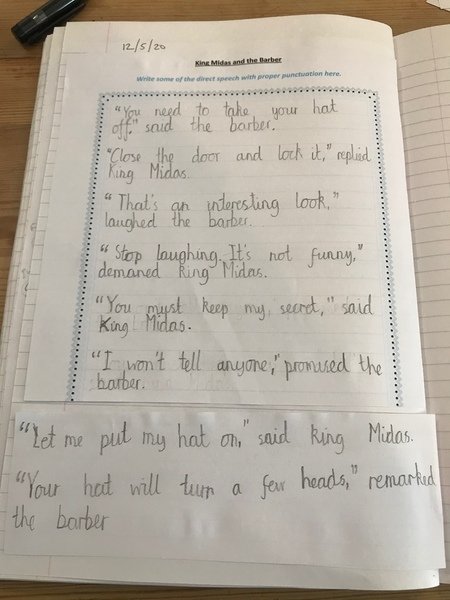 12/5/20
King Midas and the Barber
Write some of the direct speech with proper punctuation here.
"You need to take your hat
off," said the barber.
"Close the door and lock it," replied
King Midas.
"That's an interesting look,"
laughed the barber.
"Stop laughing. It's not funny,"
demaned King Midas.
"You must keep my secret," said
King Midas.
"I won't tell anyone," promised the
barber.
"Let me put my hat on," said King Midas.
"Your hat will turn a few heads," remarked
the barber